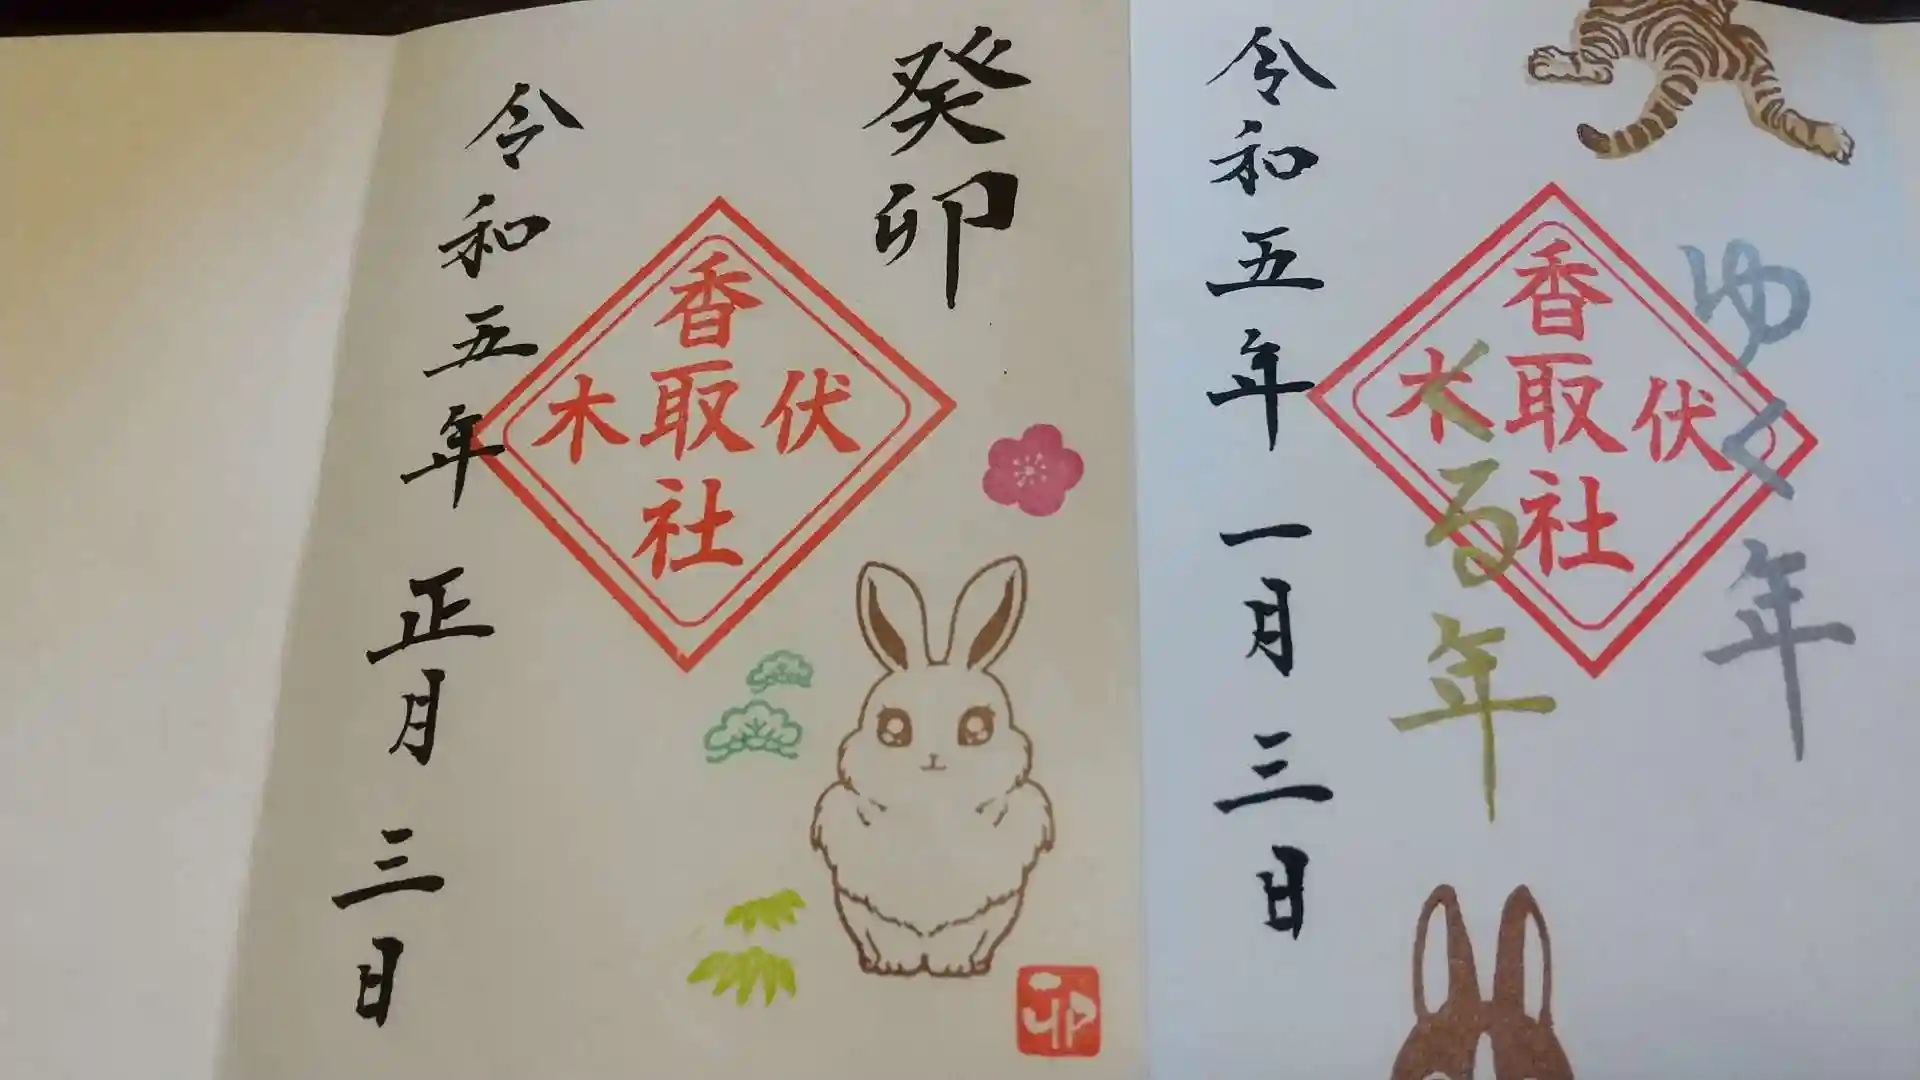 癸卯
伏木
香取社
令和五年 正月 三日
卯
ゆく年
伏木
香取社
くる年
令和五年 一月 三日